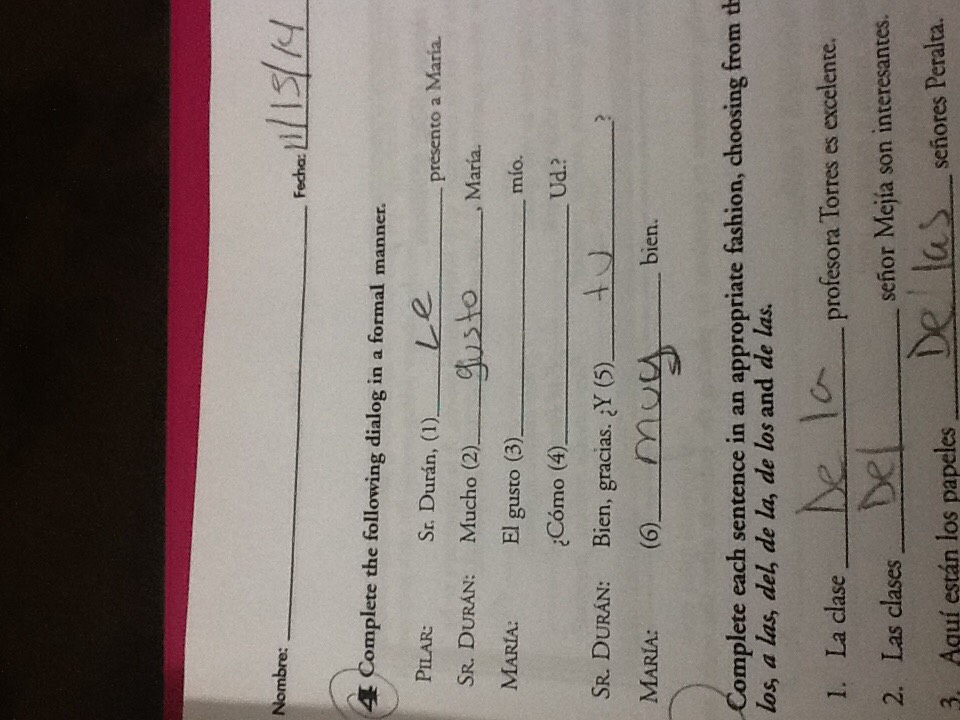 Nombre: Fecha: 11/13/14
4 Complete the following dialog in a formal manner.
PILAR: Sr. Durán, (1) Le presento a María.
SR. DURÁN: Mucho (2) gusto, María.
MARÍA: El gusto (3) mío.
¿Cómo (4) Ud.?
SR. DURÁN: Bien, gracias. ¿Y (5) tu ?
MARÍA: (6) muy bien.
Complete each sentence in an appropriate fashion, choosing from
los, a las, del, de la, de los and de las.
1. La clase De la profesora Torres es excelente.
2. Las clases Del señor Mejía son interesantes.
3. Aquí están los papeles De las señores Peralta.